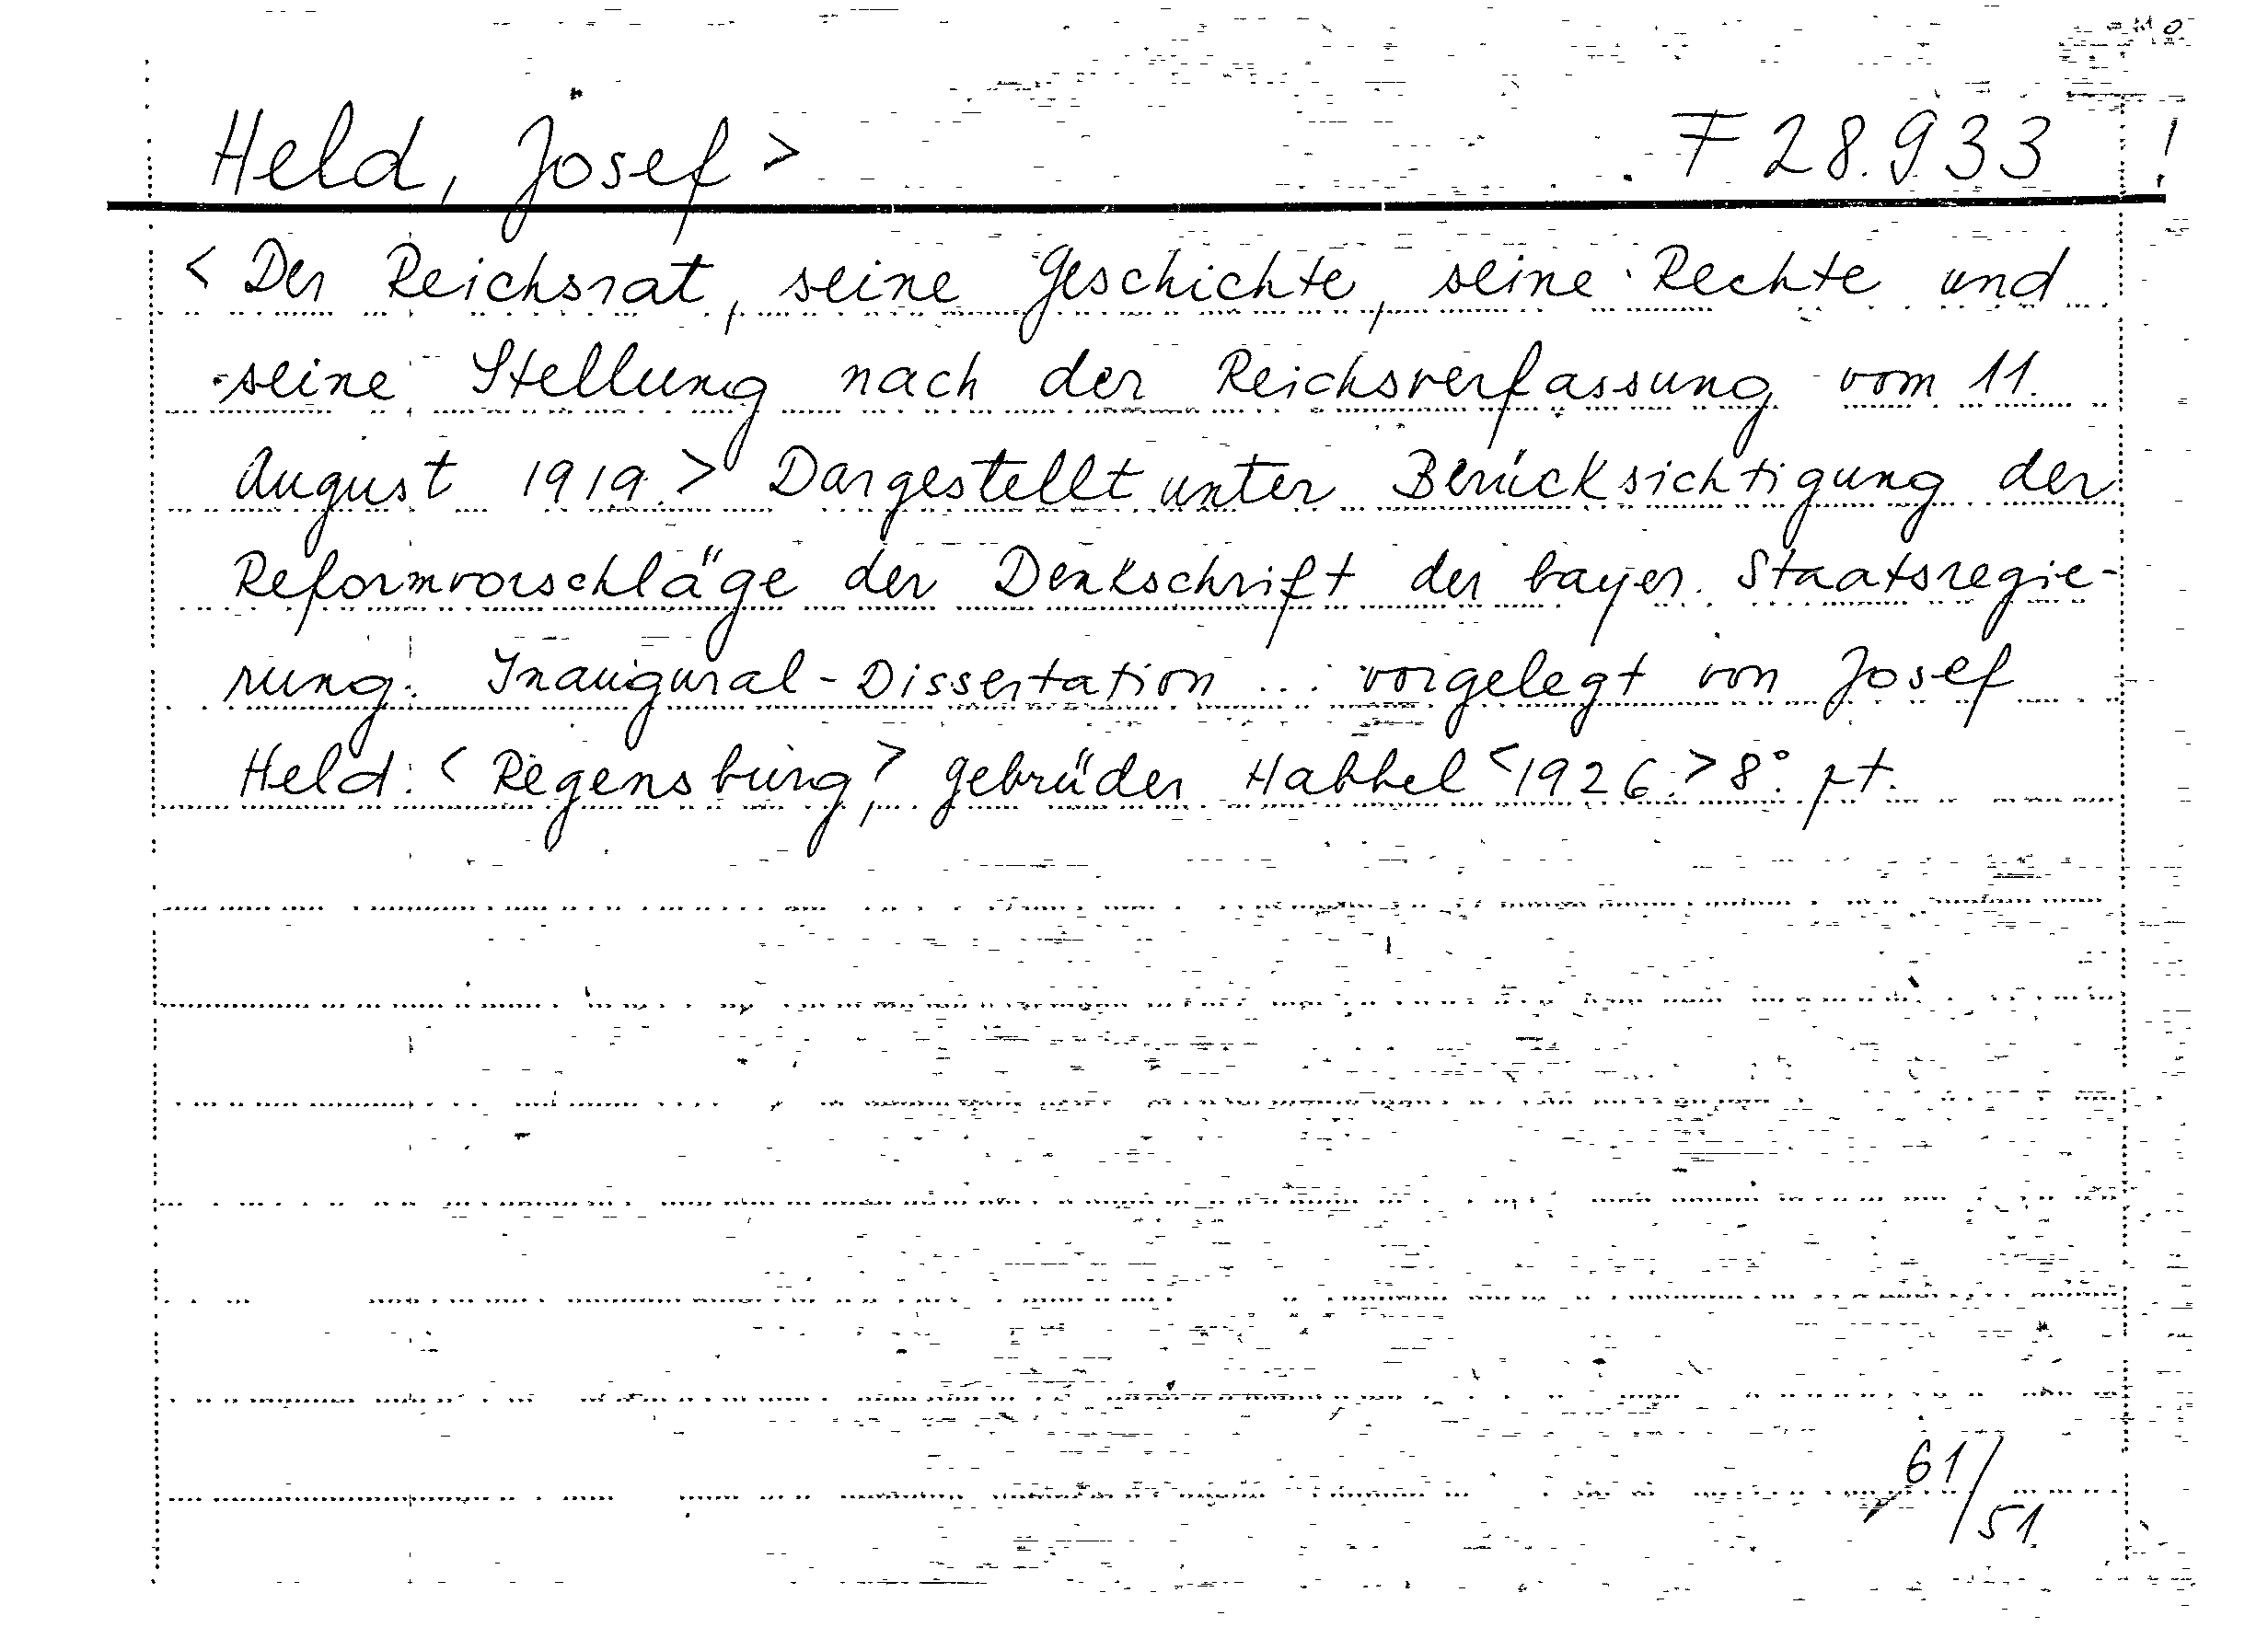 Held, Josef > F 28.933 !
< Der Reichsrat, seine Geschichte, seine Rechte und
seine Stellung nach der Reichsverfassung vom 11.
August 1919. > Dargestellt unter Berücksichtigung der
Reformvorschläge der Denkschrift der bayer. Staatsregie-
rung. Inaugural-Dissertation ... vorgelegt von Josef
Held. < Regensburg, > Gebrüder Habbel < 1926. > 8°. pt.
61/51.